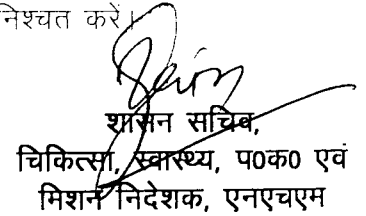 निश्चत करें।
शासन सचिव,
चिकित्सा, स्वास्थ्य, प0क0 एवं
मिशन निदेशक, एनएचएम